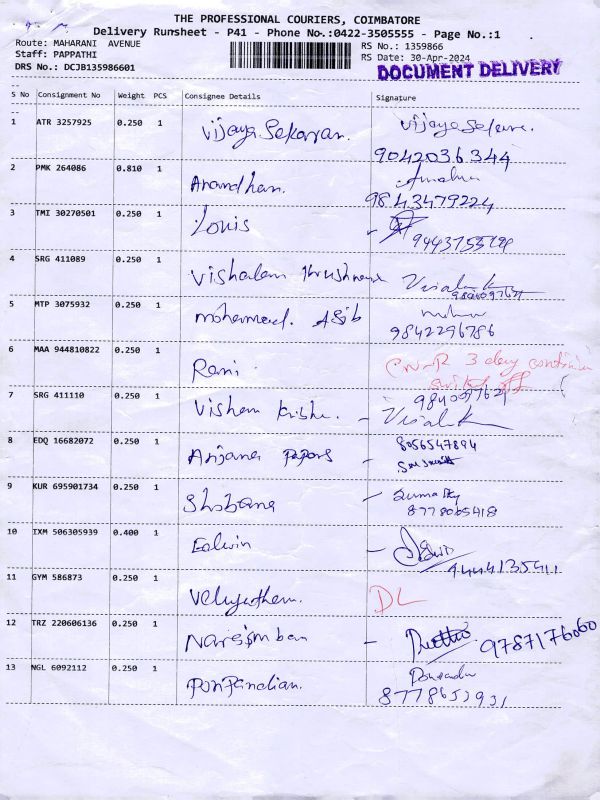 THE PROFESSIONAL COURIERS, COIMBATORE
Delivery Runsheet - P41 - Phone No.:0422-3505555 - Page No.:1
Route: MAHARANI AVENUE
Staff: PAPPATHI
DRS No.: DCJB135986601
RS No.: 1359866
RS Date: 30-Apr-2024
DOCUMENT DELIVERY
S No Consignment No Weight PCS Consignee Details Signature
1 ATR 3257925 0.250 1 Vijaya Sekaran.
9042036344
2 PMK 264086 0.810 1 Anandhan.
9843479224
3 TMI 30270501 0.250 1 Louis
4 SRG 411089 0.250 1 Vishalam
5 MTP 3075932 0.250 1 mohammed. Asib
9842296786
6 MAA 944810822 0.250 1 Rani. 3 day
7 SRG 411110 0.250 1
8 EDQ 16682072 0.250 1 Anjana
8056547894
9 KUR 695901734 0.250 1 Shobana
8778065418
10 IXM 506305939 0.400 1 Edwin
11 GYM 586873 0.250 1 DL
12 TRZ 220606136 0.250 1 9787176060
13 NGL 6092112 0.250 1 PonPandian.